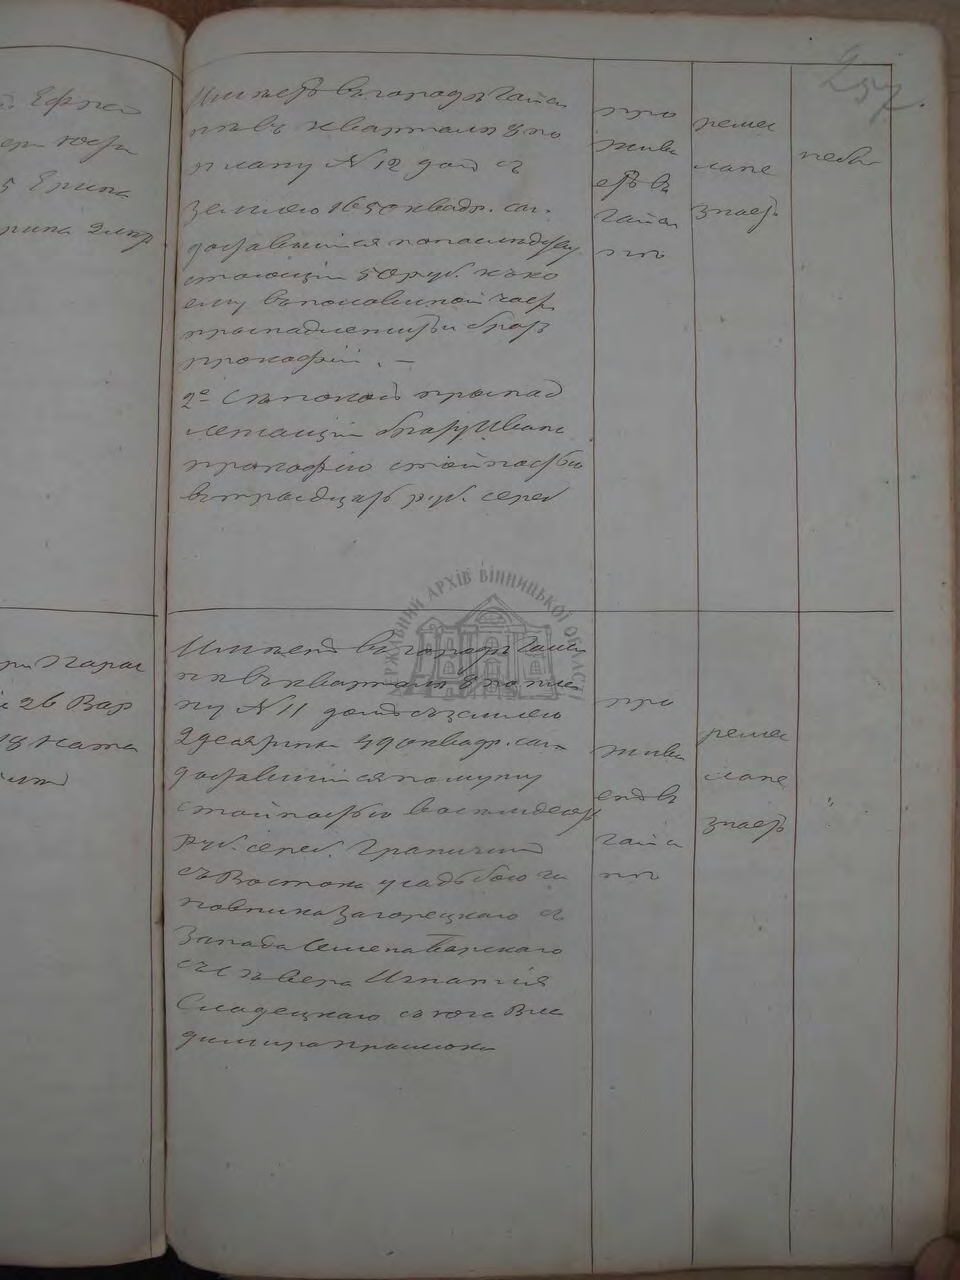 257.
Ефрос
5 Ирина
рина 2 мар
Имѣетъ въ городѣ Гайси
нѣ въ кварталѣ 8 по
плану N 12 домъ съ
землею 1650 квадр. саж.
доставшійся по наслѣдству
стоющій 50 руб. къ ко
ему въ половинной части
принадлежитъ и братъ
Прокофій. —
2е принад
лежащій брату Ивана
Прокофію стоимостью
въ тридцать руб. сереб
про
жива
етъ въ
Гайси
нѣ
ремес
ла не
знаетъ
небы
Парас
26 Вар
18 Ната
Имѣетъ въ городѣ Гайси
нѣ въ кварталѣ 8 по пла
ну N 11 домъ съ землею
2 десятины 490 квадр. саж.
доставшійся по купли
стоимостью восемдесятъ
руб. сереб. Граничитъ
съ Востока усадьбою чи
новника Загорецкаго съ
Запада Семена Барскаго
съ Сѣвера Игнатія
Сладецкаго съ юга Вла
димира
про
жива
етъ въ
Гайси
нѣ
ремес
ла не
знаетъ
"
ДЕРЖАВНИЙ АРХІВ ВІННИЦЬКОЇ ОБЛАСТІ